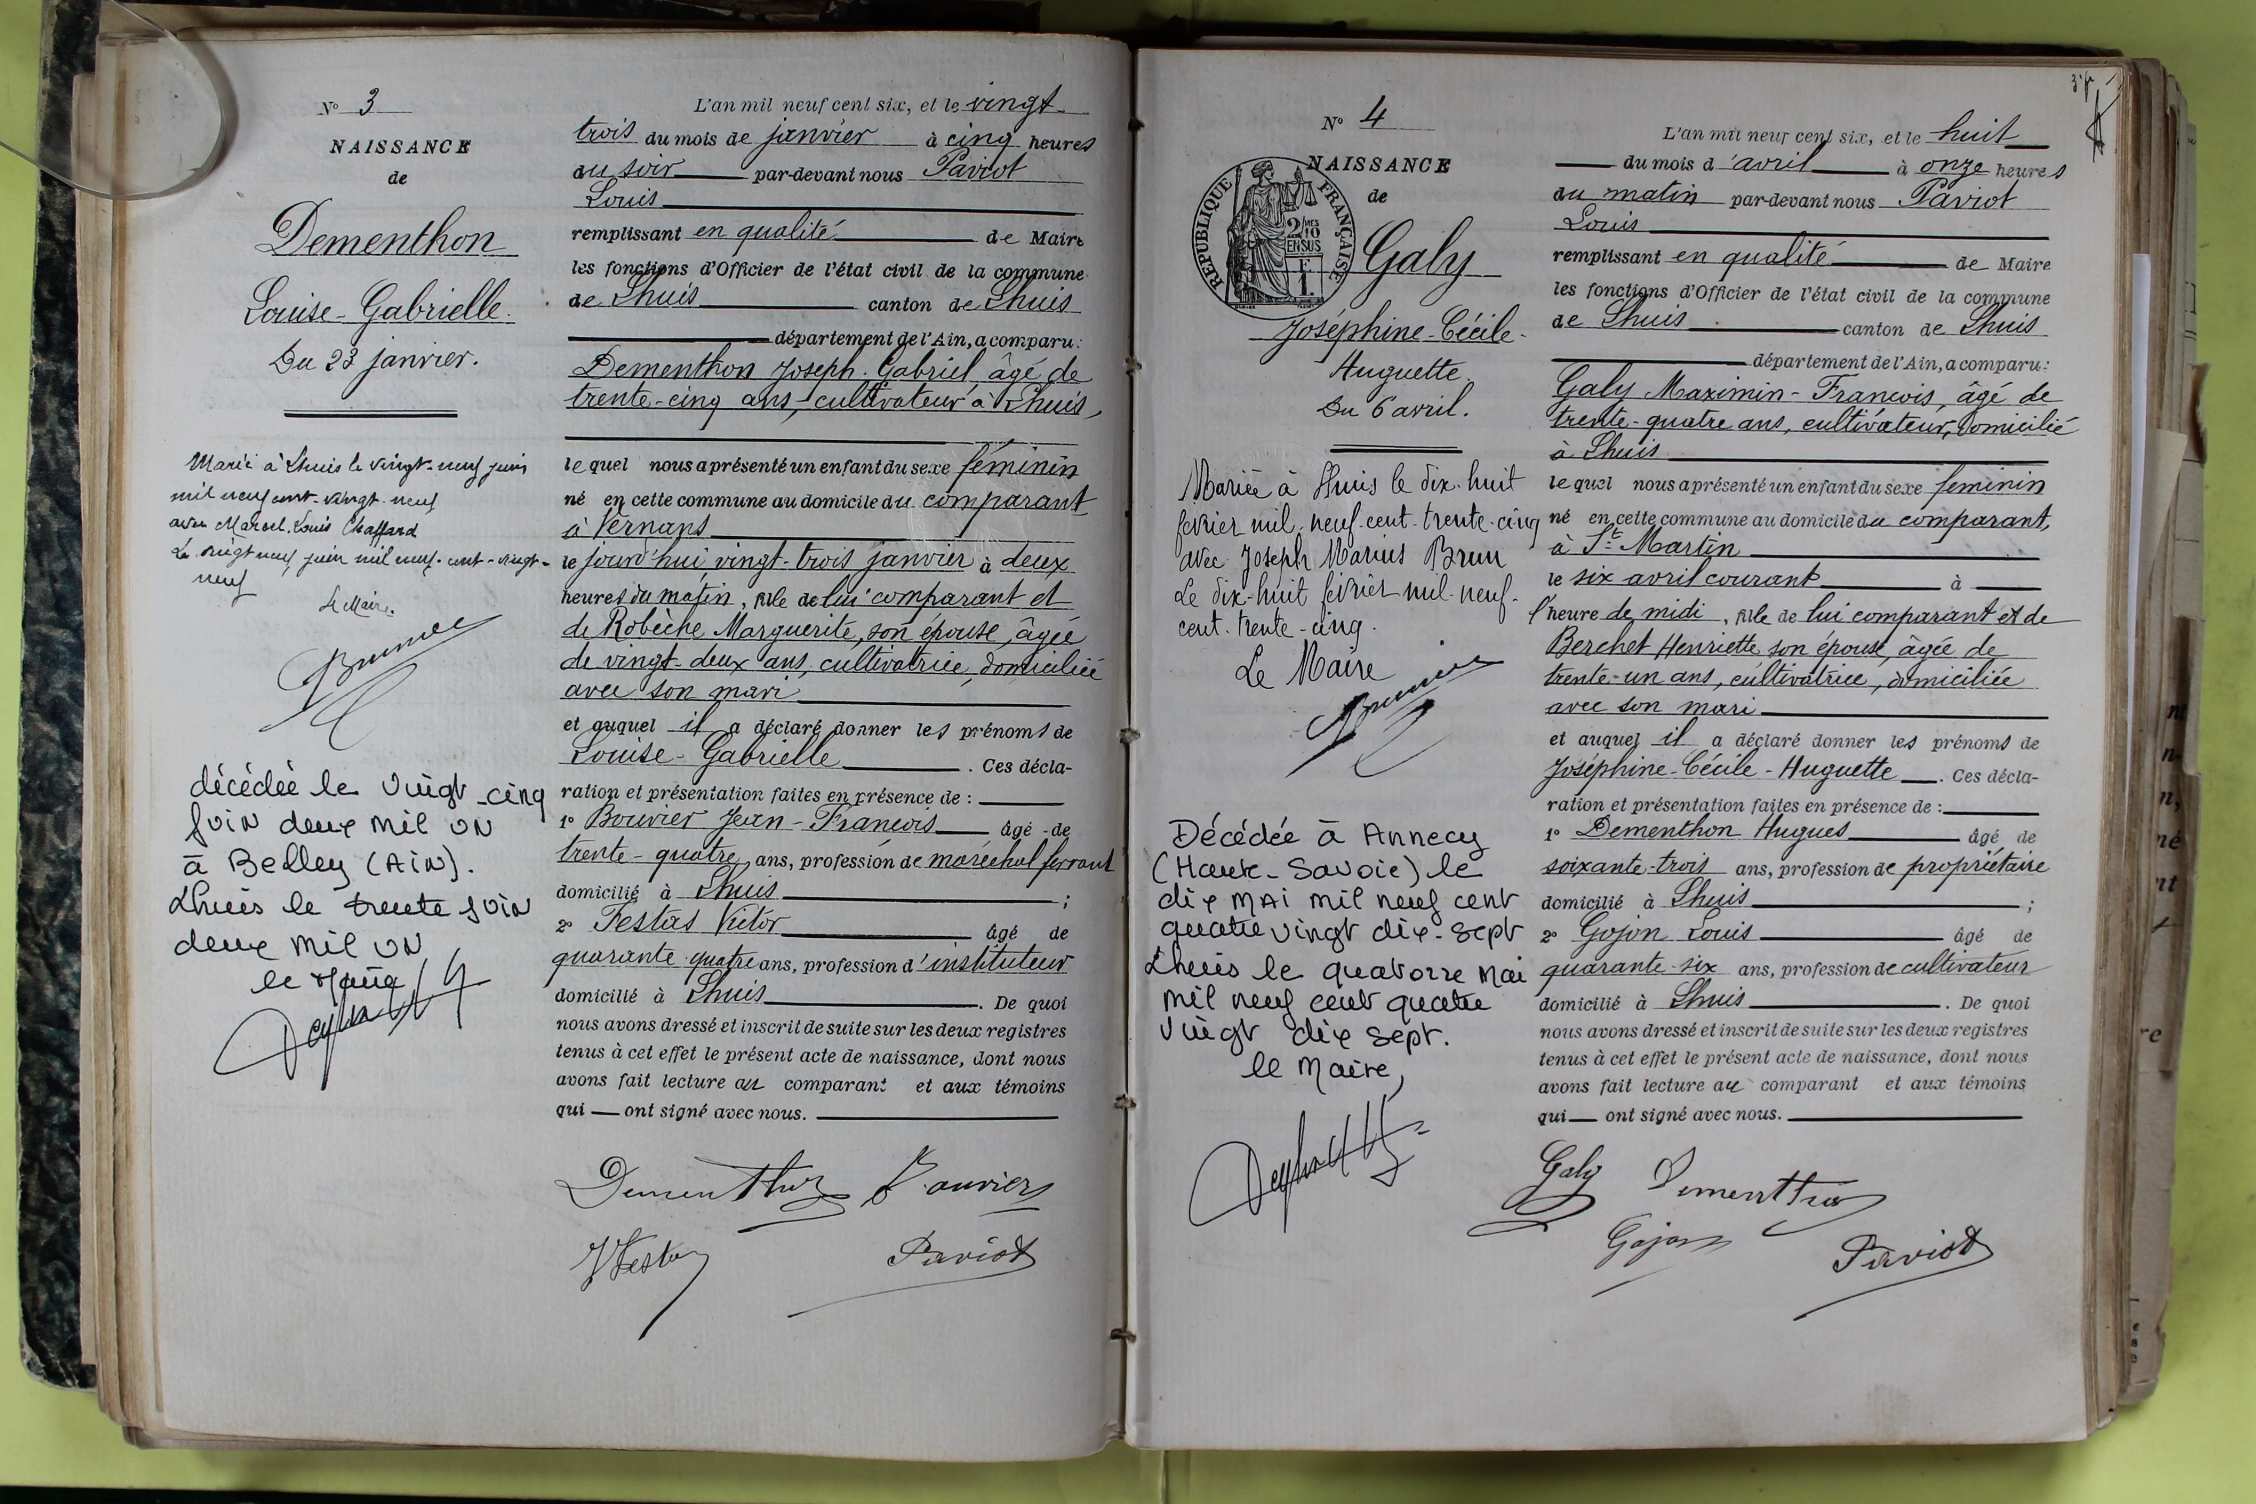 N° 3
NAISSANCE
de
Dementhon
Louise-Gabrielle.
Du 23 janvier.
Mariée à Lhuis le vingt-neuf juin
mil neuf cent-vingt-neuf
avec Marcel Louis Chaffard
Le vingt neuf juin mil neuf-cent-vingt-
neuf
Le Maire.
décédée le vingt-cinq
juin deux mil un
à Belley (Ain).
Lhuis le trente juin
deux mil un
le Maire
L'an mil neuf cent six, et le vingt
trois du mois de janvier à cinq heures
du soir par-devant nous Paviot
Louis
remplissant en qualité de Maire
les fonctions d'Officier de l'état civil de la commune
de Lhuis canton de Lhuis
département de l'Ain, a comparu:
Dementhon Joseph-Gabriel, âgé de
trente-cinq ans, cultivateur à Lhuis,
le quel nous a présenté un enfant du sexe féminin
né en cette commune au domicile du comparant
à Vernans
le jourd'hui vingt-trois janvier à deux
heures du matin, fille de lui comparant et
de Robèche Marguerite, son épouse, âgée
de vingt-deux ans, cultivatrice, domiciliée
avec son mari
et auquel il a déclaré donner les prénoms de
Louise-Gabrielle. Ces décla-
ration et présentation faites en présence de :
1° Bouvier Jean-François âgé de
trente-quatre ans, profession de maréchal ferrant
domicilié à Lhuis ;
2° Testas Victor âgé de
quarante-quatre ans, profession d'instituteur
domicilié à Lhuis. De quoi
nous avons dressé et inscrit de suite sur les deux registres
tenus à cet effet le présent acte de naissance, dont nous
avons fait lecture au comparant et aux témoins
qui — ont signé avec nous.
Dementhon Bouvier
VTestas Paviot
N° 4
NAISSANCE
de
RÉPUBLIQUE FRANÇAISE
2/10 EN SUS
Galy
Joséphine-Cécile-
Huguette.
Du 6 avril.
Mariée à Lhuis le dix-huit
février mil-neuf-cent-trente-cinq
avec Joseph Marius Brun
Le dix-huit février mil-neuf-
cent-trente-cinq.
Le Maire
Décédée à Annecy
(Haute-Savoie) le
dix mai mil neuf cent
quatre vingt dix-sept
Lhuis le quatorze mai
mil neuf cent quatre
vingt dix sept.
le Maire,
L'an mil neuf cent six, et le huit
du mois d'avril à onze heures
du matin par-devant nous Paviot
Louis
remplissant en qualité de Maire
les fonctions d'Officier de l'état civil de la commune
de Lhuis canton de Lhuis
département de l'Ain, a comparu:
Galy Maximin-François, âgé de
trente-quatre ans, cultivateur, domicilié
à Lhuis
le quel nous a présenté un enfant du sexe féminin
né en cette commune au domicile du comparant,
à St Martin
le six avril courant à
l'heure de midi, fille de lui comparant et de
Berchet Henriette son épouse, âgée de
trente-un ans, cultivatrice, domiciliée
avec son mari
et auquel il a déclaré donner les prénoms de
Joséphine-Cécile-Huguette. Ces décla-
ration et présentation faites en présence de :
1° Dementhon Hugues âgé de
soixante-trois ans, profession de propriétaire
domicilié à Lhuis ;
2° Gojon Louis âgé de
quarante-six ans, profession de cultivateur
domicilié à Lhuis. De quoi
nous avons dressé et inscrit de suite sur les deux registres
tenus à cet effet le présent acte de naissance, dont nous
avons fait lecture au comparant et aux témoins
qui — ont signé avec nous.
Galy Dementhon
Gojon Paviot